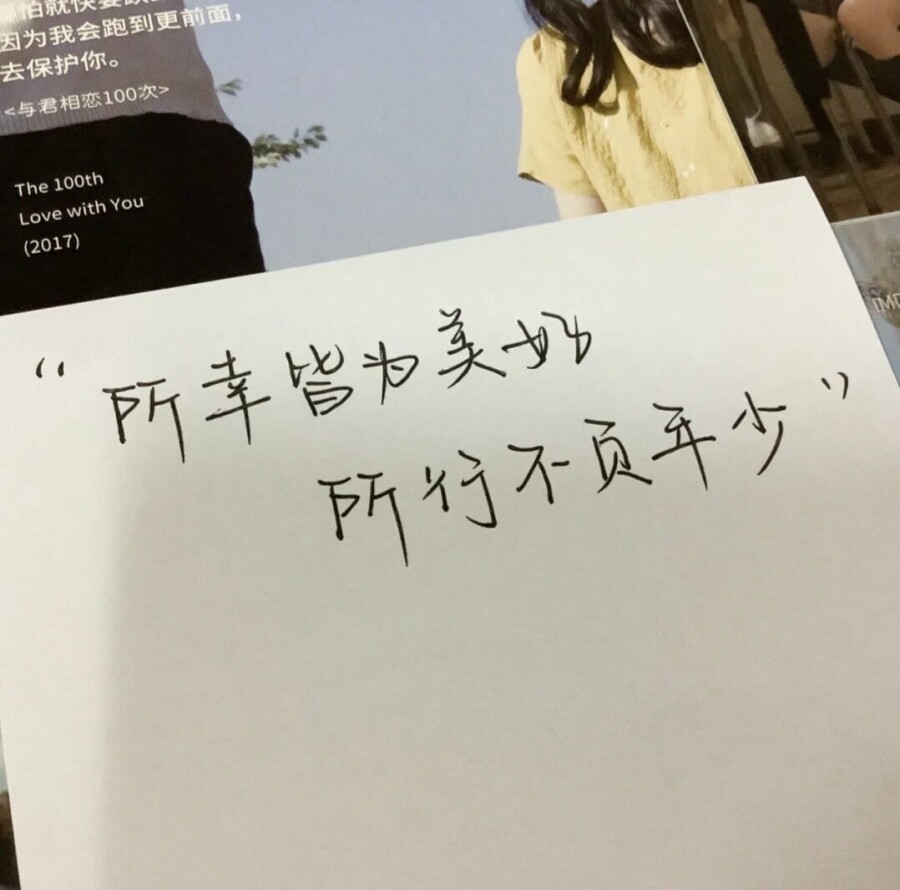 因为我会跑到更前面，
去保护你。
<与君相恋100次>
The 100th
Love with You
(2017)
“所幸皆为美好
所行不负年少”